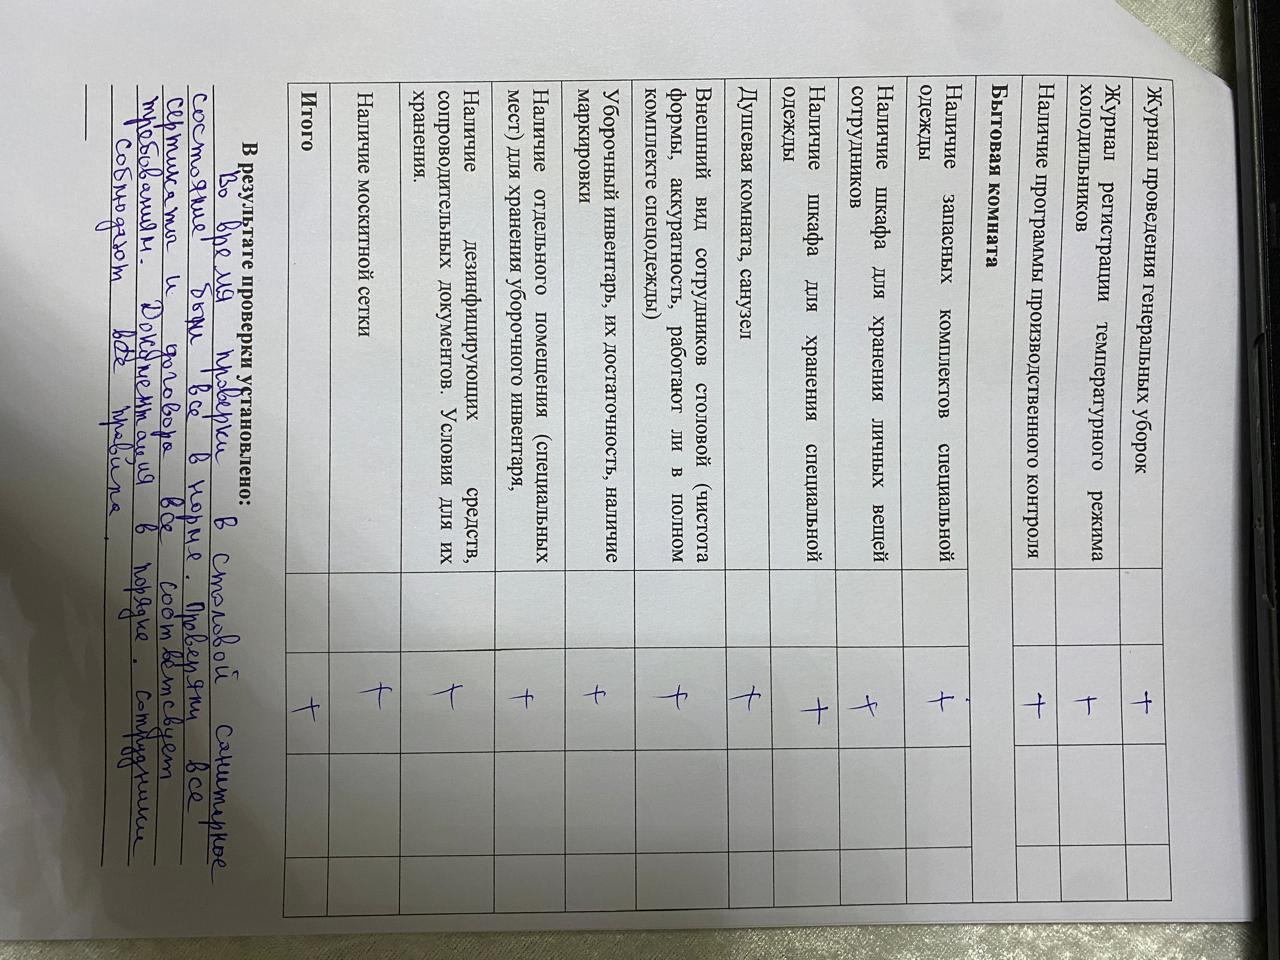 Журнал проведения генеральных уборок +
Журнал регистрации температурного режима
холодильников +
Наличие программы производственного контроля +
Бытовая комната
Наличие запасных комплектов специальной
одежды +
Наличие шкафа для хранения личных вещей
сотрудников +
Наличие шкафа для хранения специальной
одежды +
Душевая комната, санузел +
Внешний вид сотрудников столовой (чистота
формы, аккуратность, работают ли в полном
комплекте спецодежды) +
Уборочный инвентарь, их достаточность, наличие
маркировки +
Наличие отдельного помещения (специальных
мест) для хранения уборочного инвентаря, +
Наличие дезинфицирующих средств,
сопроводительных документов. Условия для их
хранения. +
Наличие москитной сетки +
Итого +
В результате проверки установлено:
Во время проверки в столовой санитарное
состояние были все в норме. Проверяли все
сертикаты и договора все соответсвует
требованиям. Документация в порядке. сотрудники
соблюдают все правила.